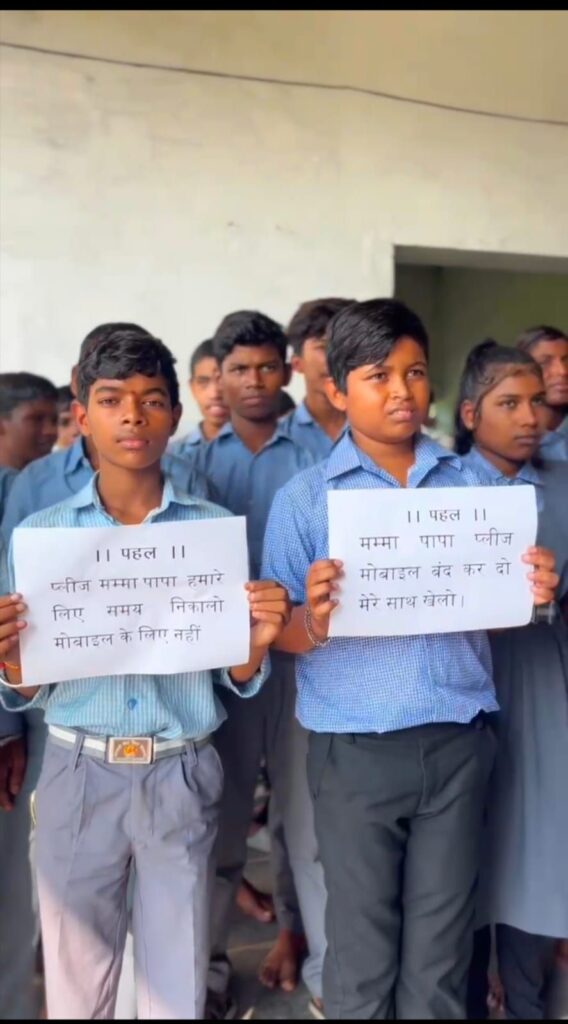 ।। पहल ।।
प्लीज मम्मा पापा हमारे
लिए समय निकालो
मोबाइल के लिए नहीं
।। पहल ।।
मम्मा पापा प्लीज
मोबाइल बंद कर दो
मेरे साथ खेलो।